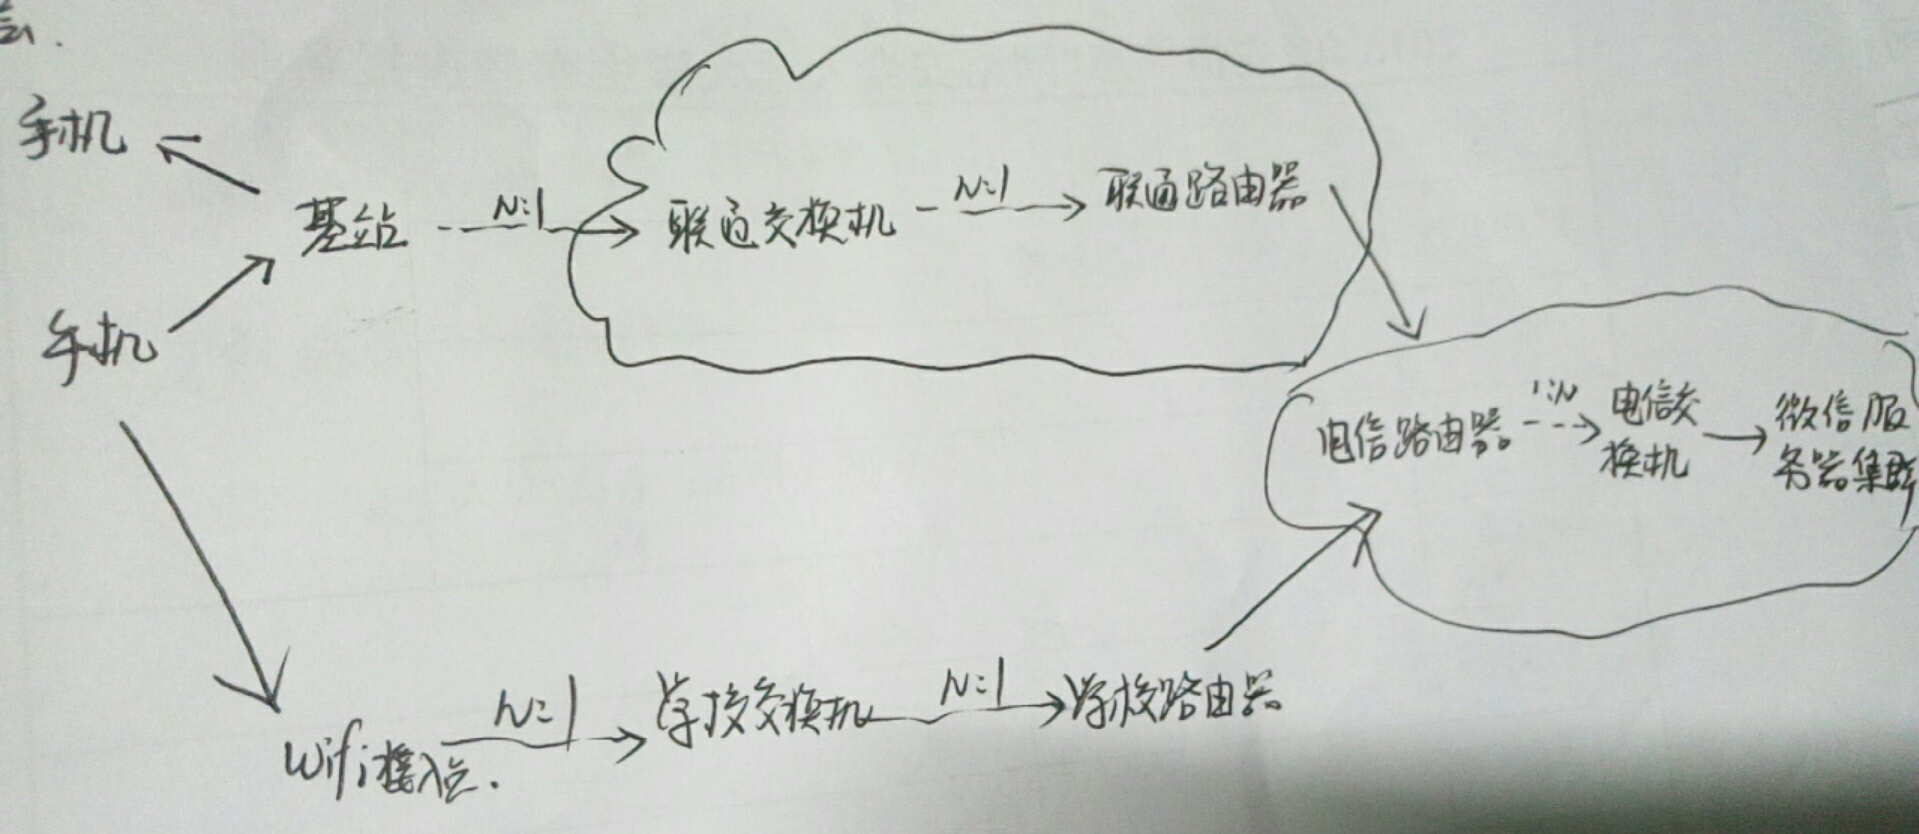 手机
基站
N:1
联通交换机
N:1
联通路由器
手机
电信路由器
1:N
电信交
换机
微信服
务器集群
Wifi接入点.
N:1
学校交换机
N:1
学校路由器